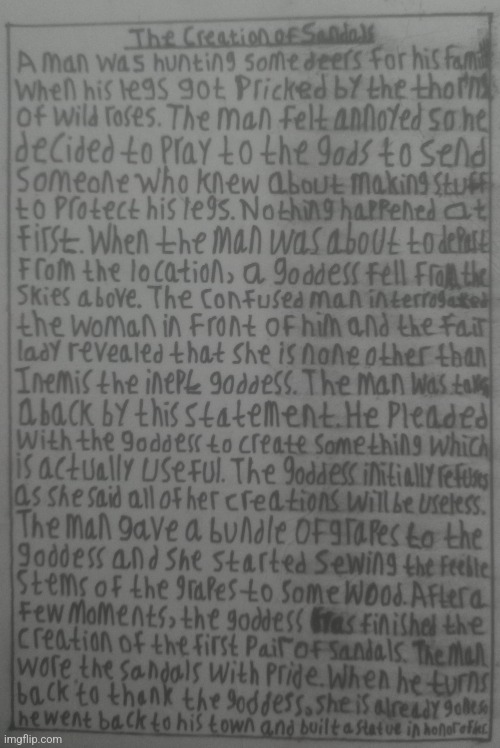 The Creation of Sandals
A man was hunting some deers for his family
when his legs got pricked by the thorns
of wild roses. The man felt annoyed so he
decided to pray to the gods to send
someone who knew about making stuff
to protect his legs. Nothing happened at
first. When the man was about to depart
from the location, a goddess fell from the
skies above. The confused man interrogated
the woman in front of him and the fair
lady revealed that she is none other than
Inemis the inept goddess. The man was taken
aback by this statement. He pleaded
with the goddess to create something which
is actually useful. The goddess initially refuses
as she said all of her creations will be useless.
The man gave a bundle of grapes to the
goddess and she started sewing the feeble
stems of the grapes to some wood. After a
few moments, the goddess has finished the
creation of the first pair of sandals. The man
wore the sandals with pride. When he turns
back to thank the goddess, she is already gone so
he went back to his town and built a statue in honor of
imgflip.com